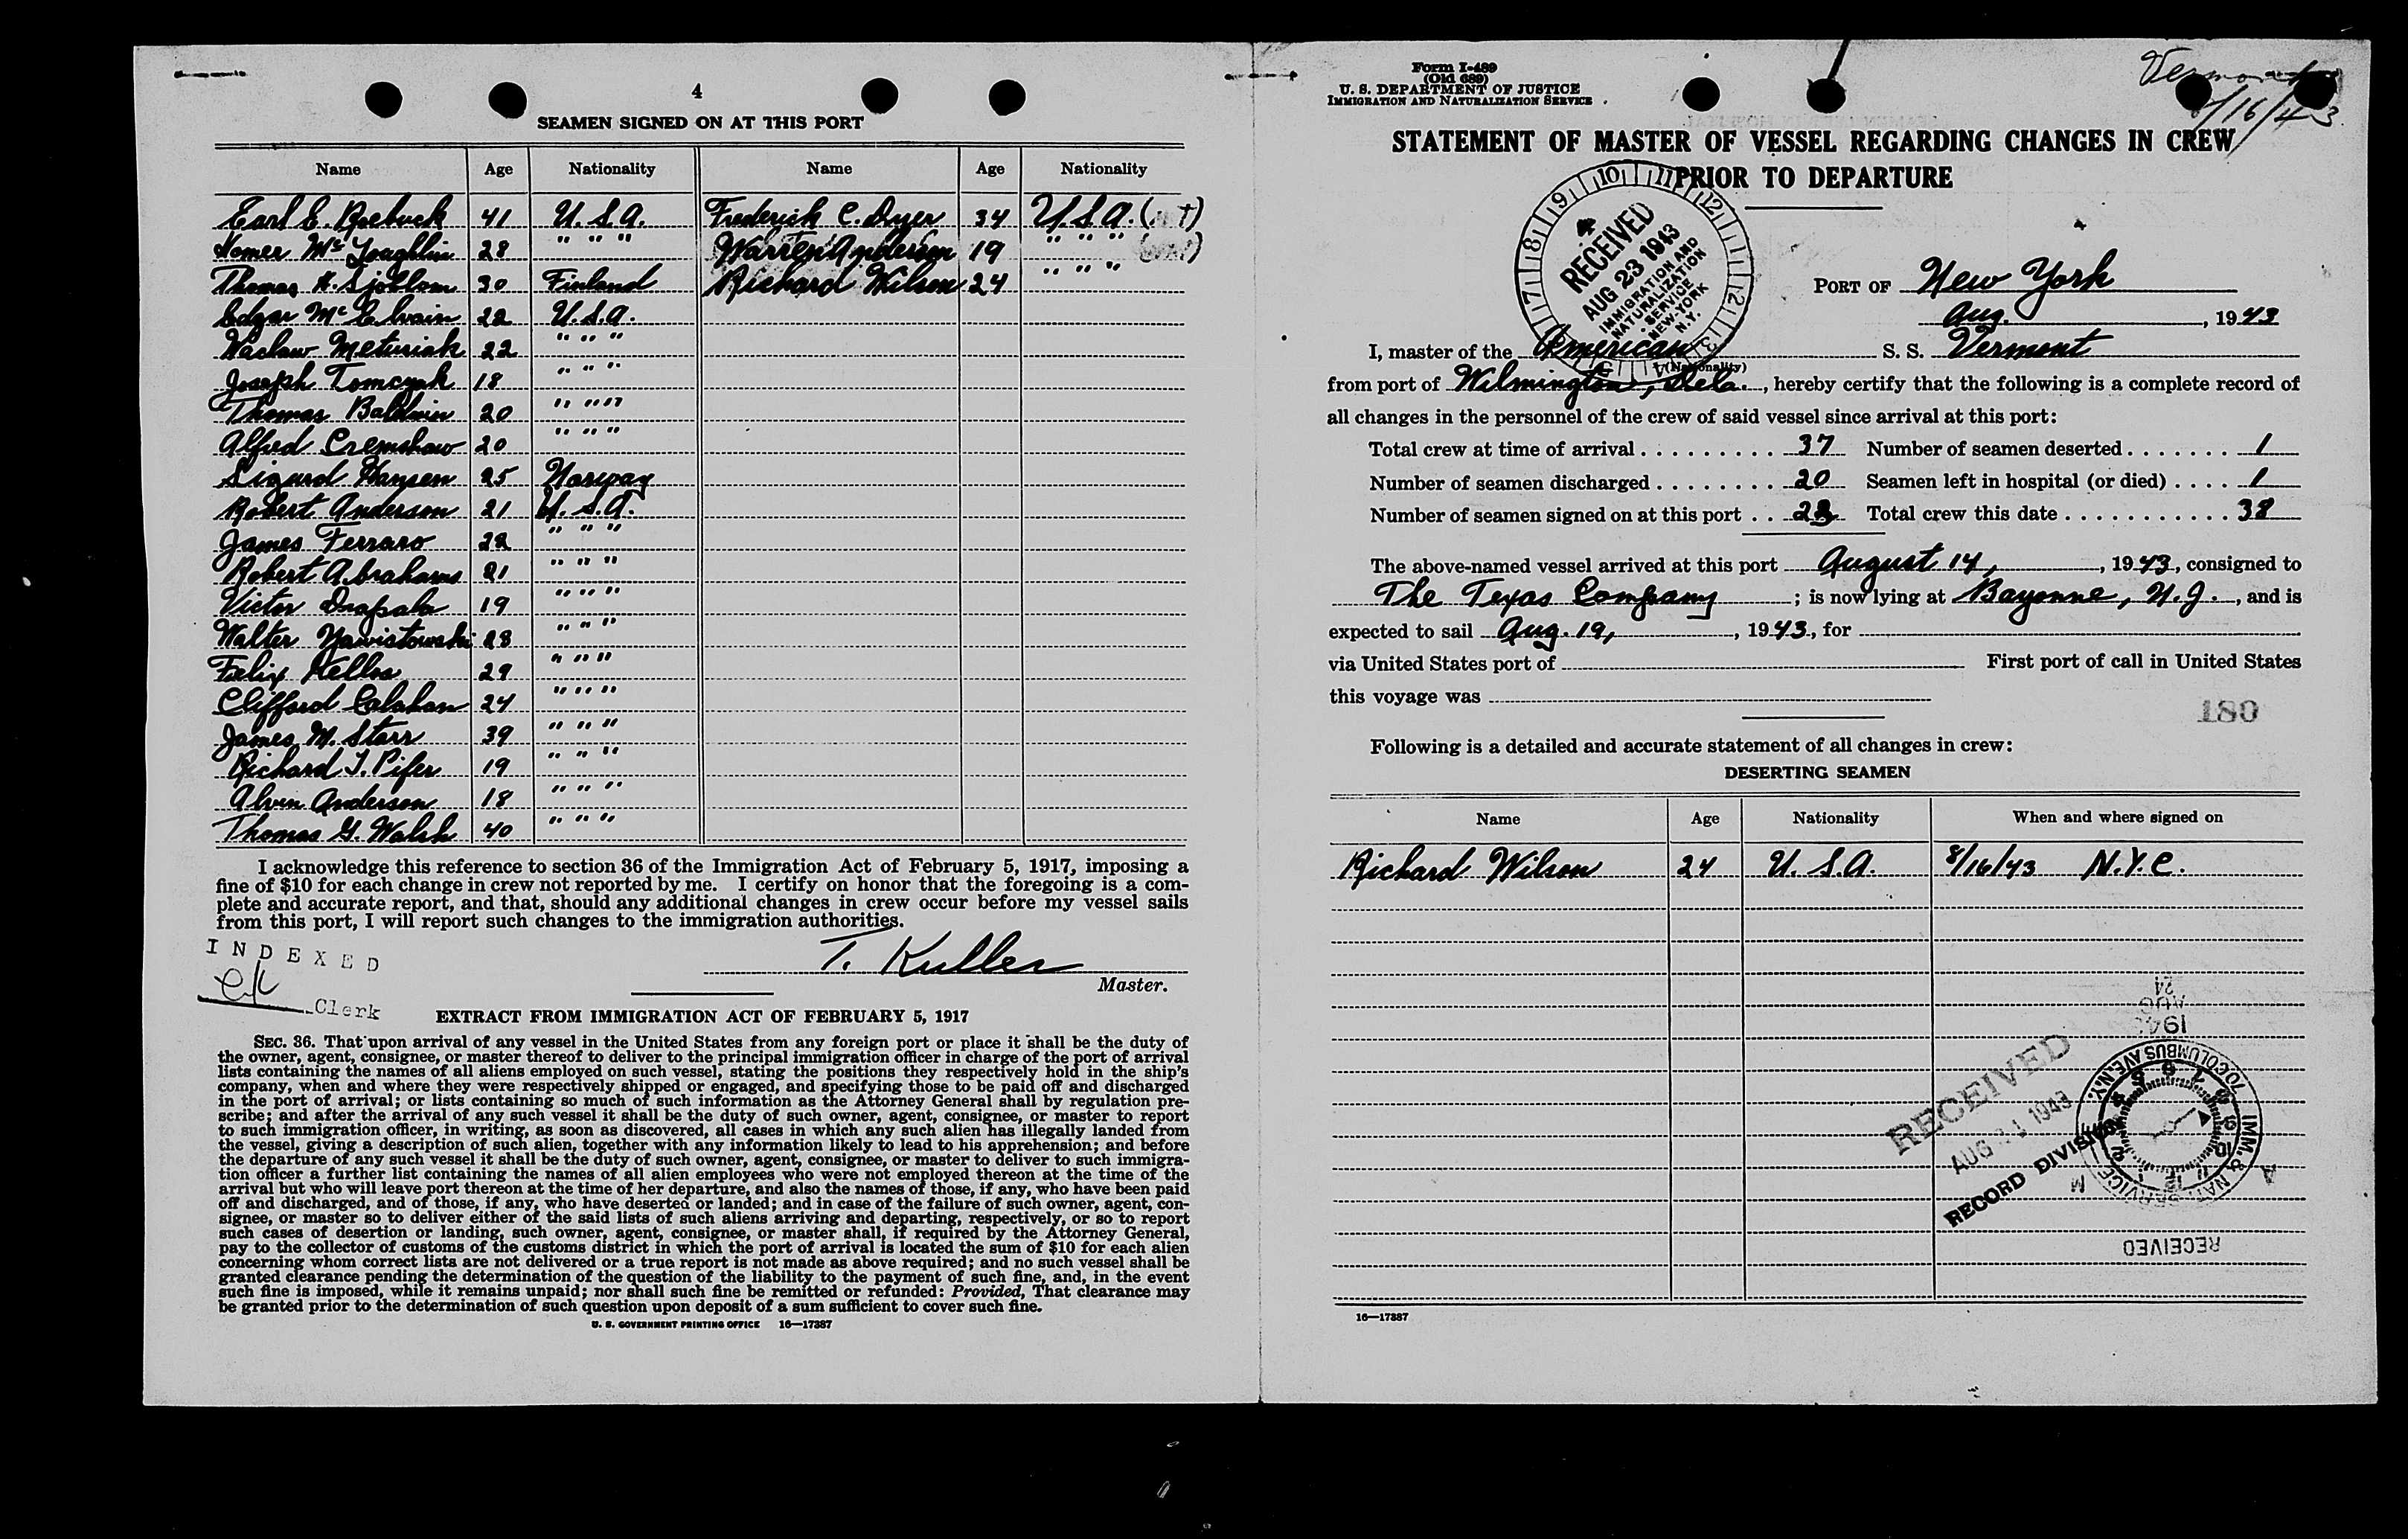 4
SEAMEN SIGNED ON AT THIS PORT
Name Age Nationality Name Age Nationality
Earl E. Roebuck 41 U.S.A. Frederick C. Dryer 34 U.S.A.
Homer Mc Loaghlin 28 " " " Warren Anderson 19 " " "
Thomas H. Sjoblom 30 Finland Richard Wilson 24 " " "
Edgar McElvain 22 U.S.A.
Waclaw Meturiak 22 " " "
Joseph Tomczak 18 " " "
Thomas Baldwin 20 " " "
Alfred Crenshaw 20 " " "
Sigurd Hansen 25 Norway
Robert Anderson 21 U.S.A.
James Ferraro 22 " " "
Robert Abrahams 21 " " "
Victor Drapala 19 " " "
Walter Yawistowski 28 " " "
Felix Kellos 29 " " "
Clifford Calahan 24 " " "
James M. Starr 39 " " "
Richard T. Pifer 19 " " "
Alvin Anderson 18 " " "
Thomas G. Walsh 40 " " "
I acknowledge this reference to section 36 of the Immigration Act of February 5, 1917, imposing a
fine of $10 for each change in crew not reported by me. I certify on honor that the foregoing is a com-
plete and accurate report, and that, should any additional changes in crew occur before my vessel sails
from this port, I will report such changes to the immigration authorities.
INDEXED
T. Kuller
Master.
Clerk
EXTRACT FROM IMMIGRATION ACT OF FEBRUARY 5, 1917
SEC. 36. That upon arrival of any vessel in the United States from any foreign port or place it shall be the duty of
the owner, agent, consignee, or master thereof to deliver to the principal immigration officer in charge of the port of arrival
lists containing the names of all aliens employed on such vessel, stating the positions they respectively hold in the ship's
company, when and where they were respectively shipped or engaged, and specifying those to be paid off and discharged
in the port of arrival; or lists containing so much of such information as the Attorney General shall by regulation pre-
scribe; and after the arrival of any such vessel it shall be the duty of such owner, agent, consignee, or master to report
to such immigration officer, in writing, as soon as discovered, all cases in which any such alien has illegally landed from
the vessel, giving a description of such alien, together with any information likely to lead to his apprehension; and before
the departure of any such vessel it shall be the duty of such owner, agent, consignee, or master to deliver to such immigra-
tion officer a further list containing the names of all alien employees who were not employed thereon at the time of the
arrival but who will leave port thereon at the time of her departure, and also the names of those, if any, who have been paid
off and discharged, and of those, if any, who have deserted or landed; and in case of the failure of such owner, agent, con-
signee, or master so to deliver either of the said lists of such aliens arriving and departing, respectively, or so to report
such cases of desertion or landing, such owner, agent, consignee, or master shall, if required by the Attorney General,
pay to the collector of customs of the customs district in which the port of arrival is located the sum of $10 for each alien
concerning whom correct lists are not delivered or a true report is not made as above required; and no such vessel shall be
granted clearance pending the determination of the question of the liability to the payment of such fine, and, in the event
such fine is imposed, while it remains unpaid; nor shall such fine be remitted or refunded: Provided, That clearance may
be granted prior to the determination of such question upon deposit of a sum sufficient to cover such fine.
U. S. GOVERNMENT PRINTING OFFICE 16—17387
Form I-489
(Old 689)
U. S. DEPARTMENT OF JUSTICE
IMMIGRATION AND NATURALIZATION SERVICE
Vermont
8/16/43
STATEMENT OF MASTER OF VESSEL REGARDING CHANGES IN CREW
PRIOR TO DEPARTURE
RECEIVED
AUG 23 1943
IMMIGRATION AND
NATURALIZATION
SERVICE
NEW-YORK
N.Y.
PORT OF New York
Aug. , 1943
I, master of the American S. S. Vermont
(Nationality)
from port of Wilmington, Dela. , hereby certify that the following is a complete record of
all changes in the personnel of the crew of said vessel since arrival at this port:
Total crew at time of arrival . . . . . . . . . 37 Number of seamen deserted . . . . . . . 1
Number of seamen discharged . . . . . . . . 20 Seamen left in hospital (or died) . . . . 1
Number of seamen signed on at this port . . 23 Total crew this date . . . . . . . . . . . 38
The above-named vessel arrived at this port August 14, , 1943, consigned to
The Texas Company ; is now lying at Bayonne, N.J. , and is
expected to sail Aug. 19, , 1943, for
via United States port of First port of call in United States
this voyage was
180
Following is a detailed and accurate statement of all changes in crew:
DESERTING SEAMEN
Name Age Nationality When and where signed on
Richard Wilson 24 U.S.A. 8/16/43 N.Y.C.
1943
AUG
24
RECEIVED
AUG 24 1943
RECORD DIVISION
70 COLUMBUS AVE. N.Y.
IMM. & NAT. SERVICE
A M
RECEIVED
16—17387